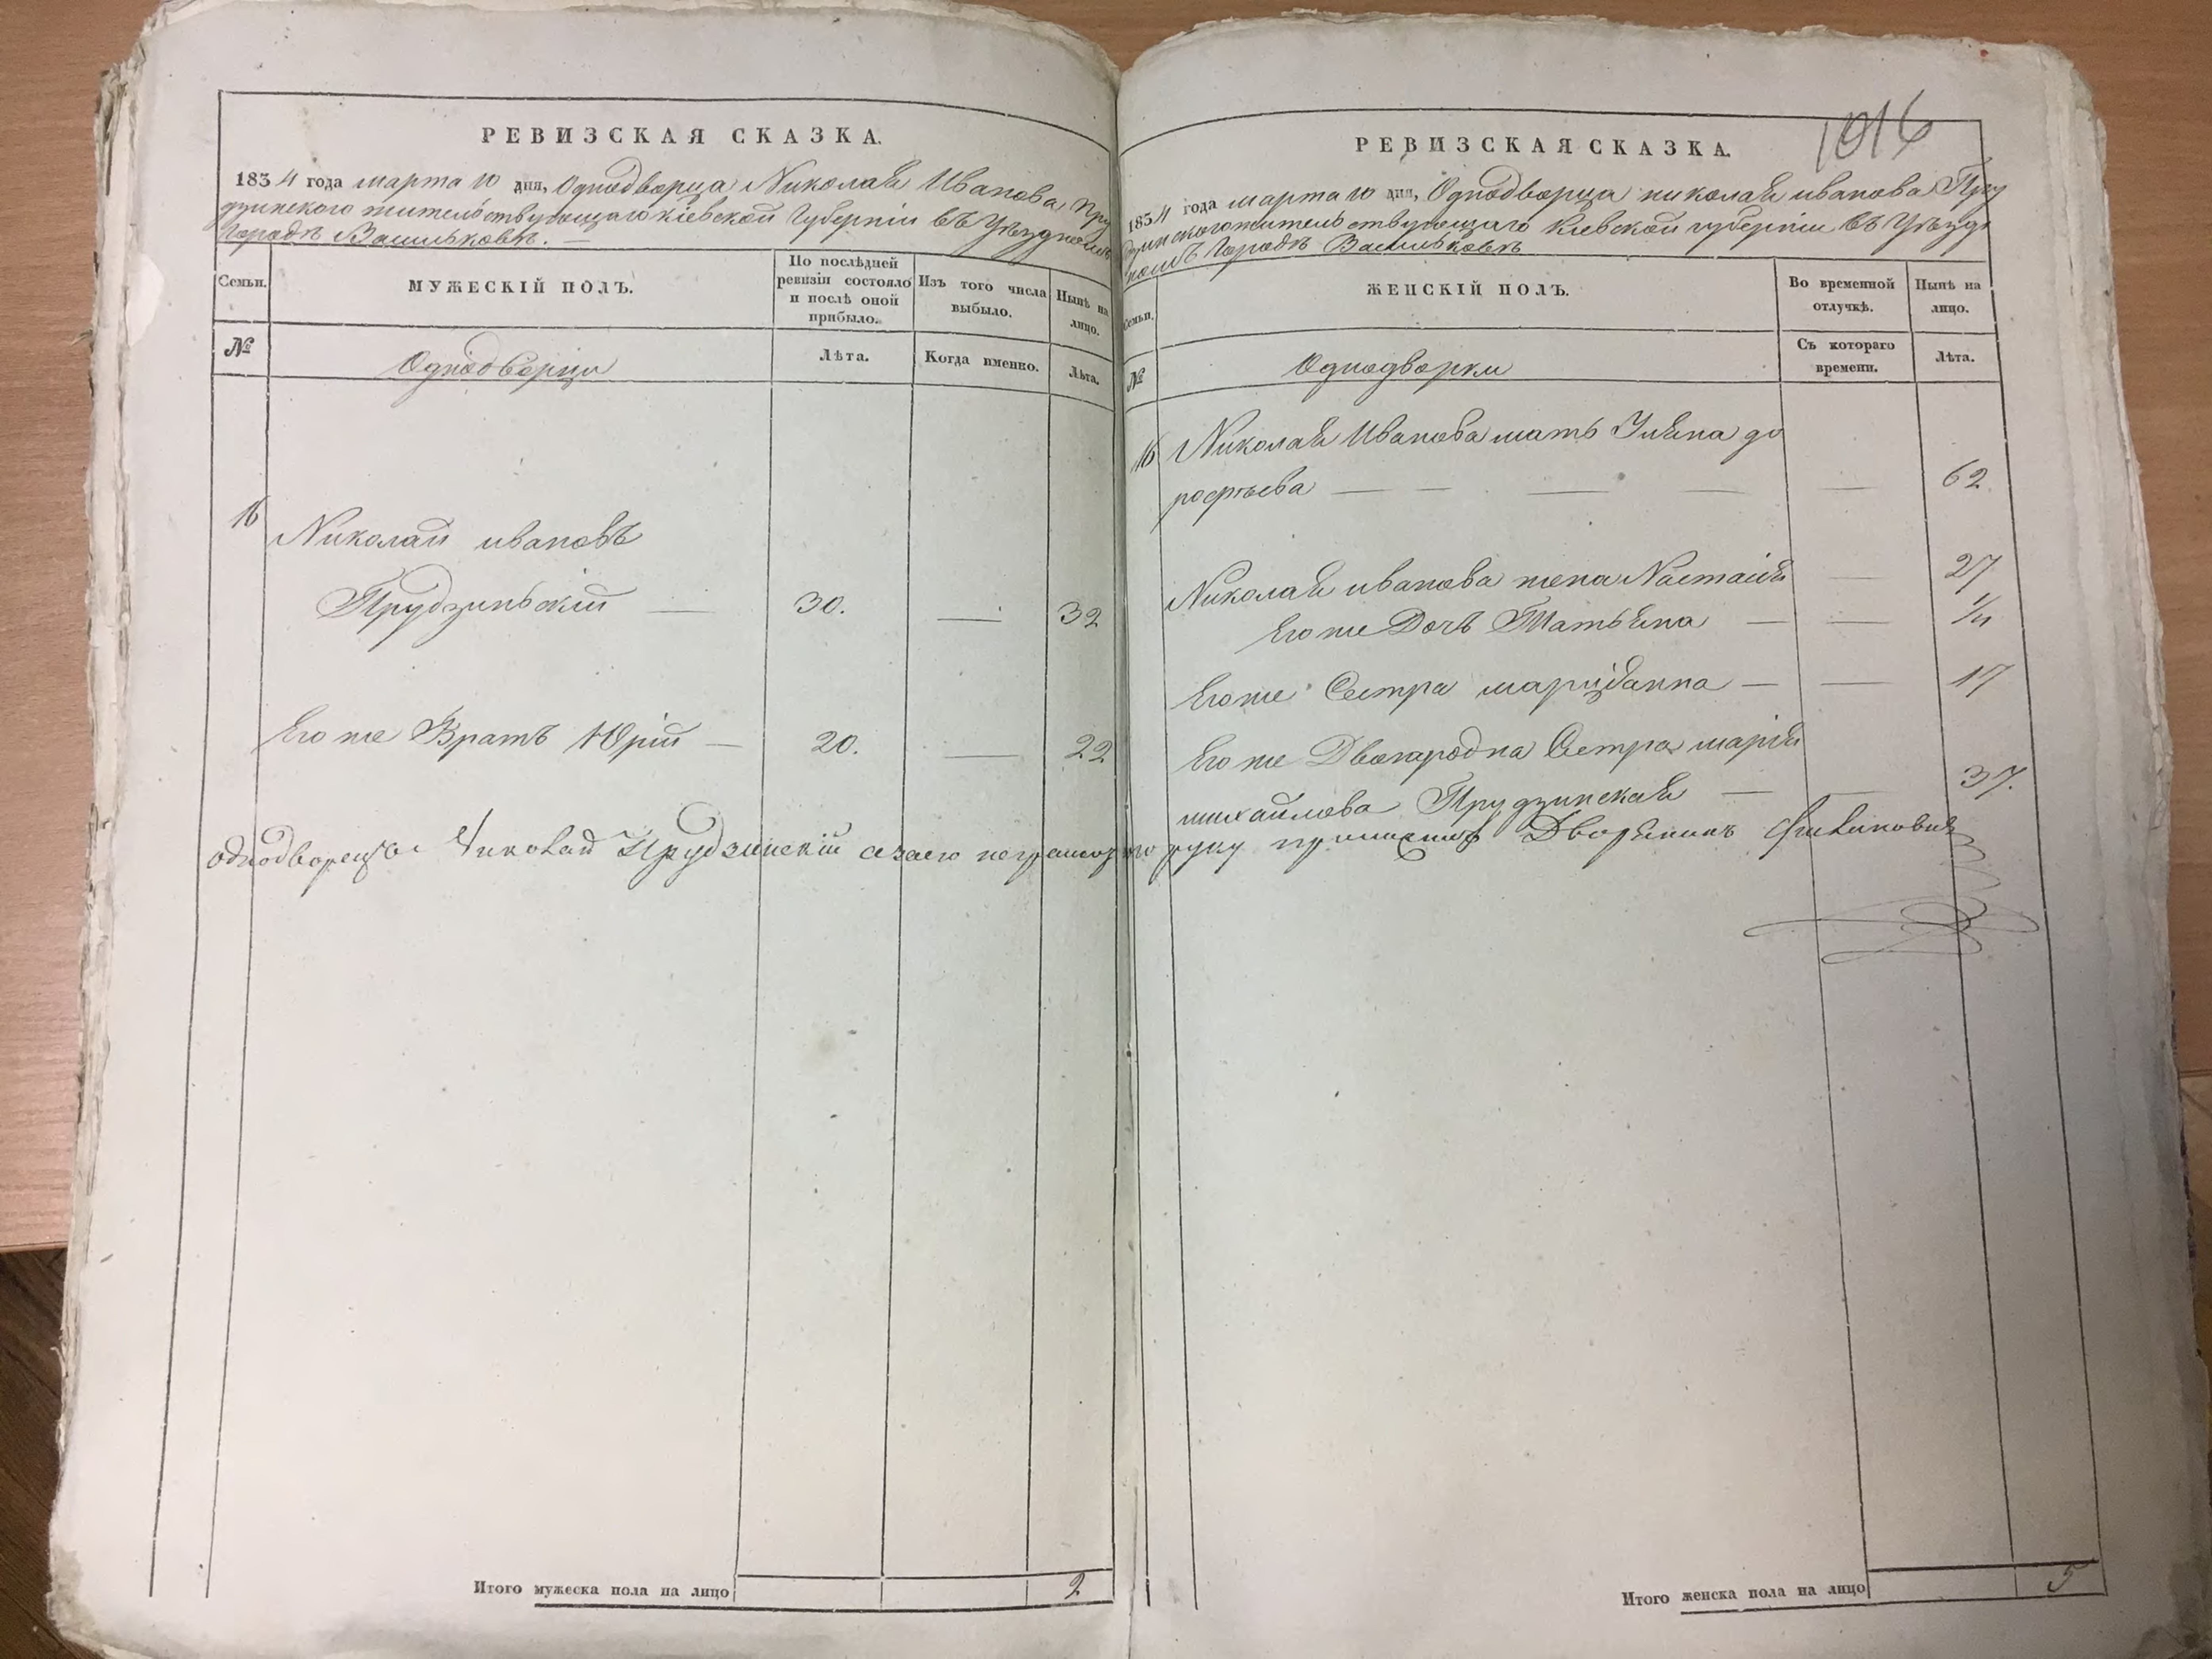 РЕВИЗСКАЯ СКАЗКА.
1834 года марта 10 дня, Однодворца Николая Иванова Пру
дзинского жительствующаго Кіевской Губерніи въ Уѣздномъ
Городѣ Васильковѣ. —
Семьи.
МУЖЕСКІЙ ПОЛЪ.
По послѣдней ревизіи состояло и послѣ оной прибыло.
Изъ того числа выбыло.
Нынѣ на лицо.
№
Однодворци
Лѣта.
Когда именно.
Лѣта.
16
Николай ивановъ
Прудзиньскій — 30. — 32
Его же Братъ Юрій — 20. — 22
Однодворецъ Николай Прудзинскій а за его неграмотного руку приложилъ Дворянинъ
Итого мужеска пола на лицо 2
1016
РЕВИЗСКАЯ СКАЗКА.
1834 года марта 10 дня, Однодворца николая иванова Пру
дзинского жительствующаго Киевской губерніи въ Уѣзд
номъ Городѣ Васильковѣ
Семьи.
ЖЕНСКІЙ ПОЛЪ.
Во временной отлучкѣ.
Нынѣ на лицо.
№
Однодворки
Съ котораго времени.
Лѣта.
16 Николая Иванова мать Уляна до
рофѣева — — — — — 62
Николая иванова жена Настасія 27
Его же Дочь Татьяна — — 1/2
Его же Сестра маріянна — — 17
Его же Двоюродна Сестра марія
михайлова Прудзинская — — 37.
Итого женска пола на лицо 5